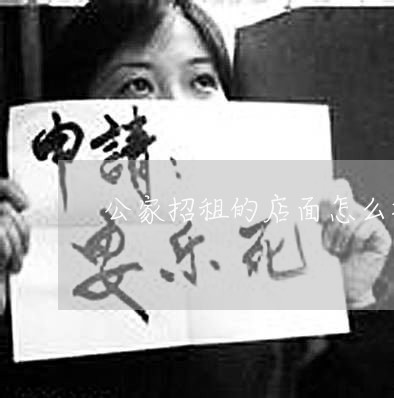 申請：
公家招租的店面怎么
安乐死